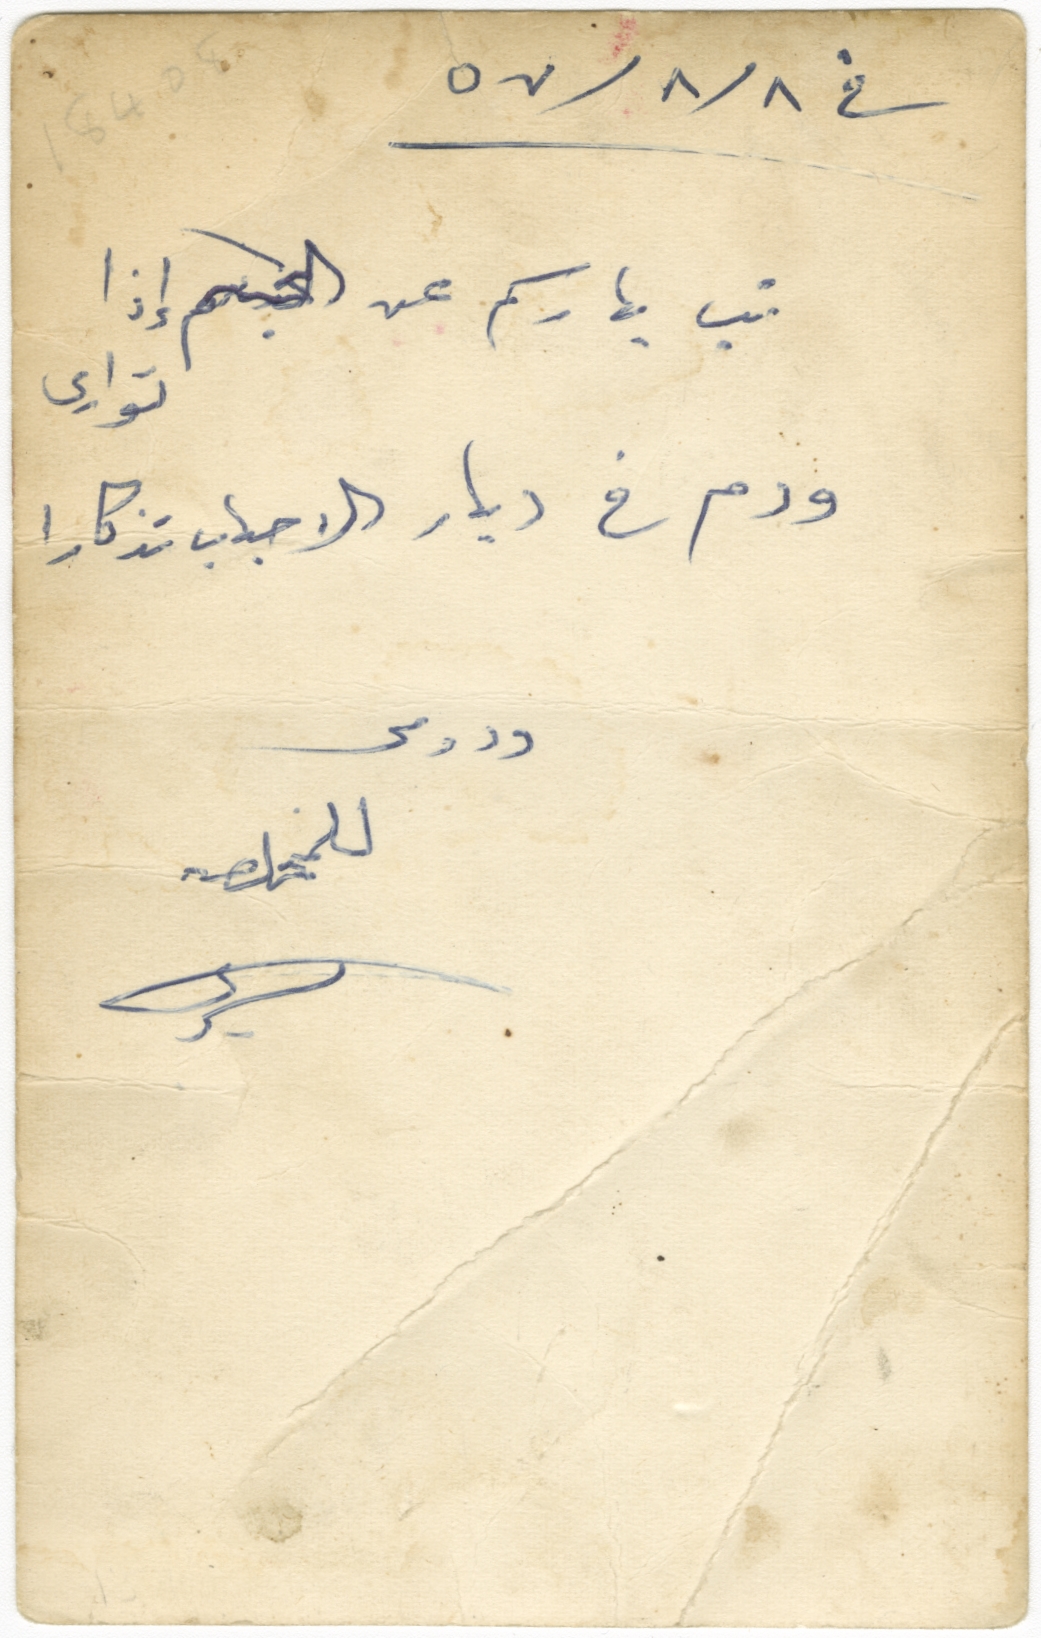 في ٨/٨/٥٧
تب يا رسم عن الجسم إذا
توارى
ودم في ديار الاحباب تذكارا
ودومي
للمخلصه